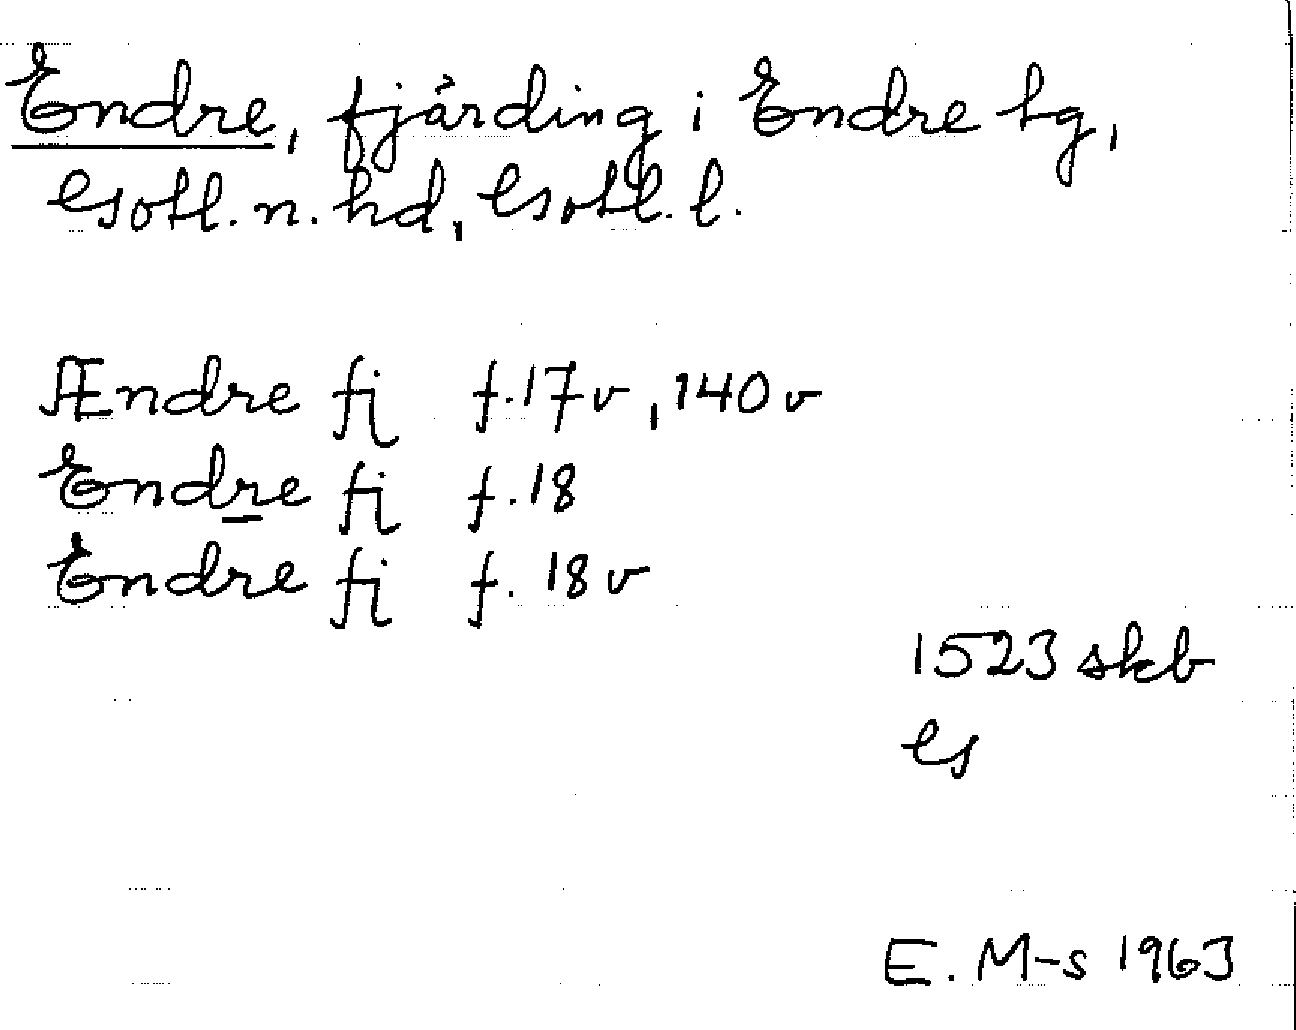 Endre, fjärding i Endre tg,
Gotl. n. hd, Gotl. l.
Ændre fj f. 17v, 140v
Endre fj f. 18
Endre fj f. 18v
1523 skb
G
E. M-s 1963